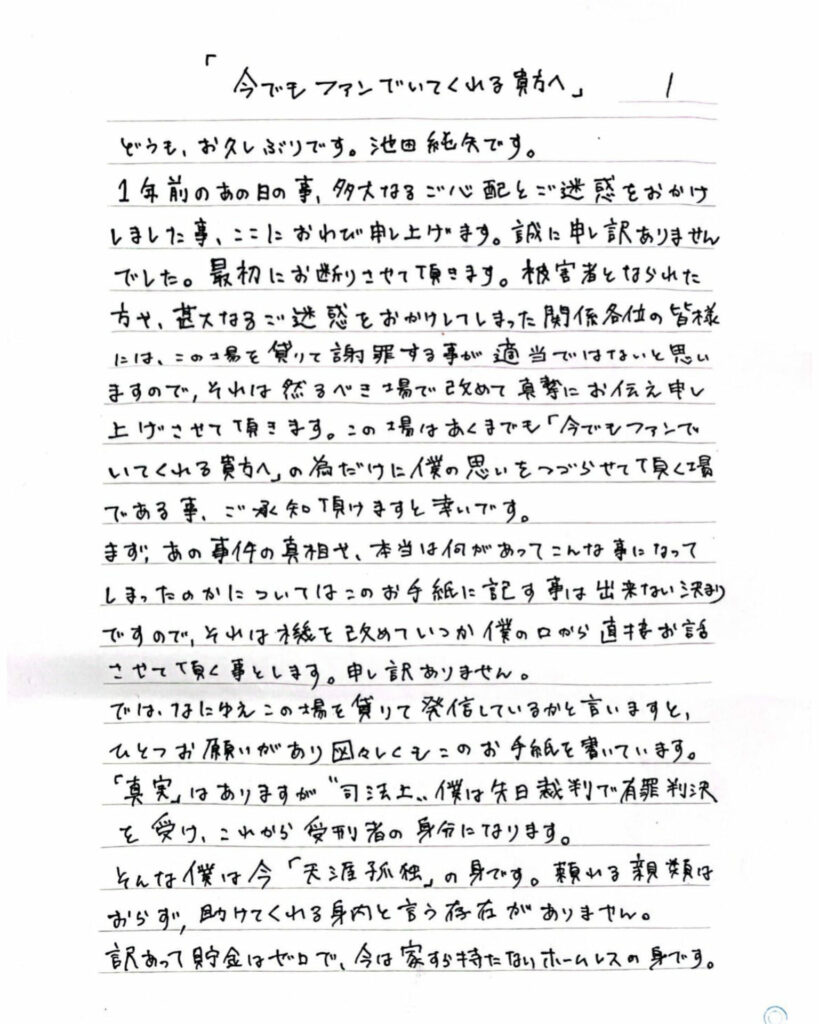 「今でもファンでいてくれる貴方へ」 1
どうも、お久しぶりです。池田純矢です。
1年前のあの日の事、多大なるご心配とご迷惑をおかけ
しました事、ここにおわび申し上げます。誠に申し訳ありません
でした。最初にお断りさせて頂きます。被害者となられた
方や、甚大なるご迷惑をおかけしてしまった関係各位の皆様
には、この場を貸りて謝罪する事が適当ではないと思い
ますので、それは然るべき場で改めて真摯にお伝え申し
上げさせて頂きます。この場はあくまでも「今でもファンで
いてくれる貴方へ」の為だけに僕の思いをつづらせて頂く場
である事、ご承知頂けますと幸いです。
まず、あの事件の真相や、本当は何があってこんな事になって
しまったのかについてはこのお手紙に記す事は出来ない決まり
ですので、それは機を改めていつか僕の口から直接お話
させて頂く事とします。申し訳ありません。
では、なにゆえこの場を貸りて発信しているかと言いますと、
ひとつお願いがあり図々しくもこのお手紙を書いています。
「真実」はありますが〝司法上〟僕は先日裁判で有罪判決
を受け、これから受刑者の身分になります。
そんな僕は今「天涯孤独」の身です。頼れる親類は
おらず、助けてくれる身内と言う存在がありません。
訳あって貯金はゼロで、今は家すら持たないホームレスの身です。